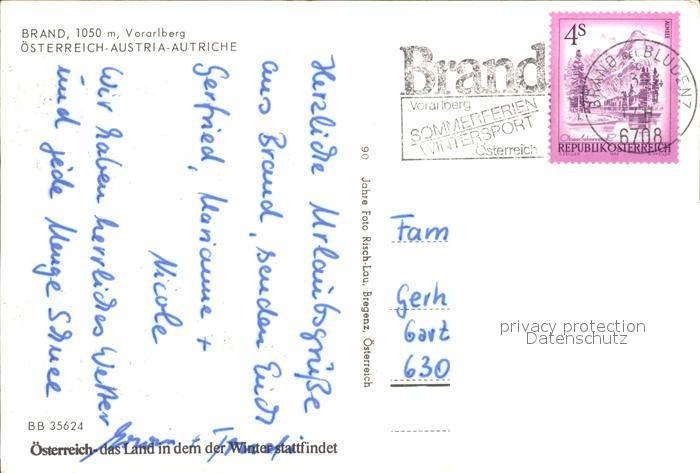 BRAND, 1050 m, Vorarlberg
ÖSTERREICH-AUSTRIA-AUTRICHE
Herzliche Urlaubsgrüße
aus Brand, senden Euch
Gerfried, Marianne +
Nicole
Wir haben herrliches Wetter
und jede Menge Schnee
BB 35624
Österreich - das Land in dem der Winter stattfindet
90 Jahre Foto Risch-Lau, Bregenz, Österreich
Brand
Vorarlberg
SOMMERFERIEN
WINTERSPORT
Österreich
4S
ALMSEE
REPUBLIK ÖSTERREICH
BRAND BEI BLUDENZ
6708
Fam
Gerh
Gart
630
privacy protection
Datenschutz